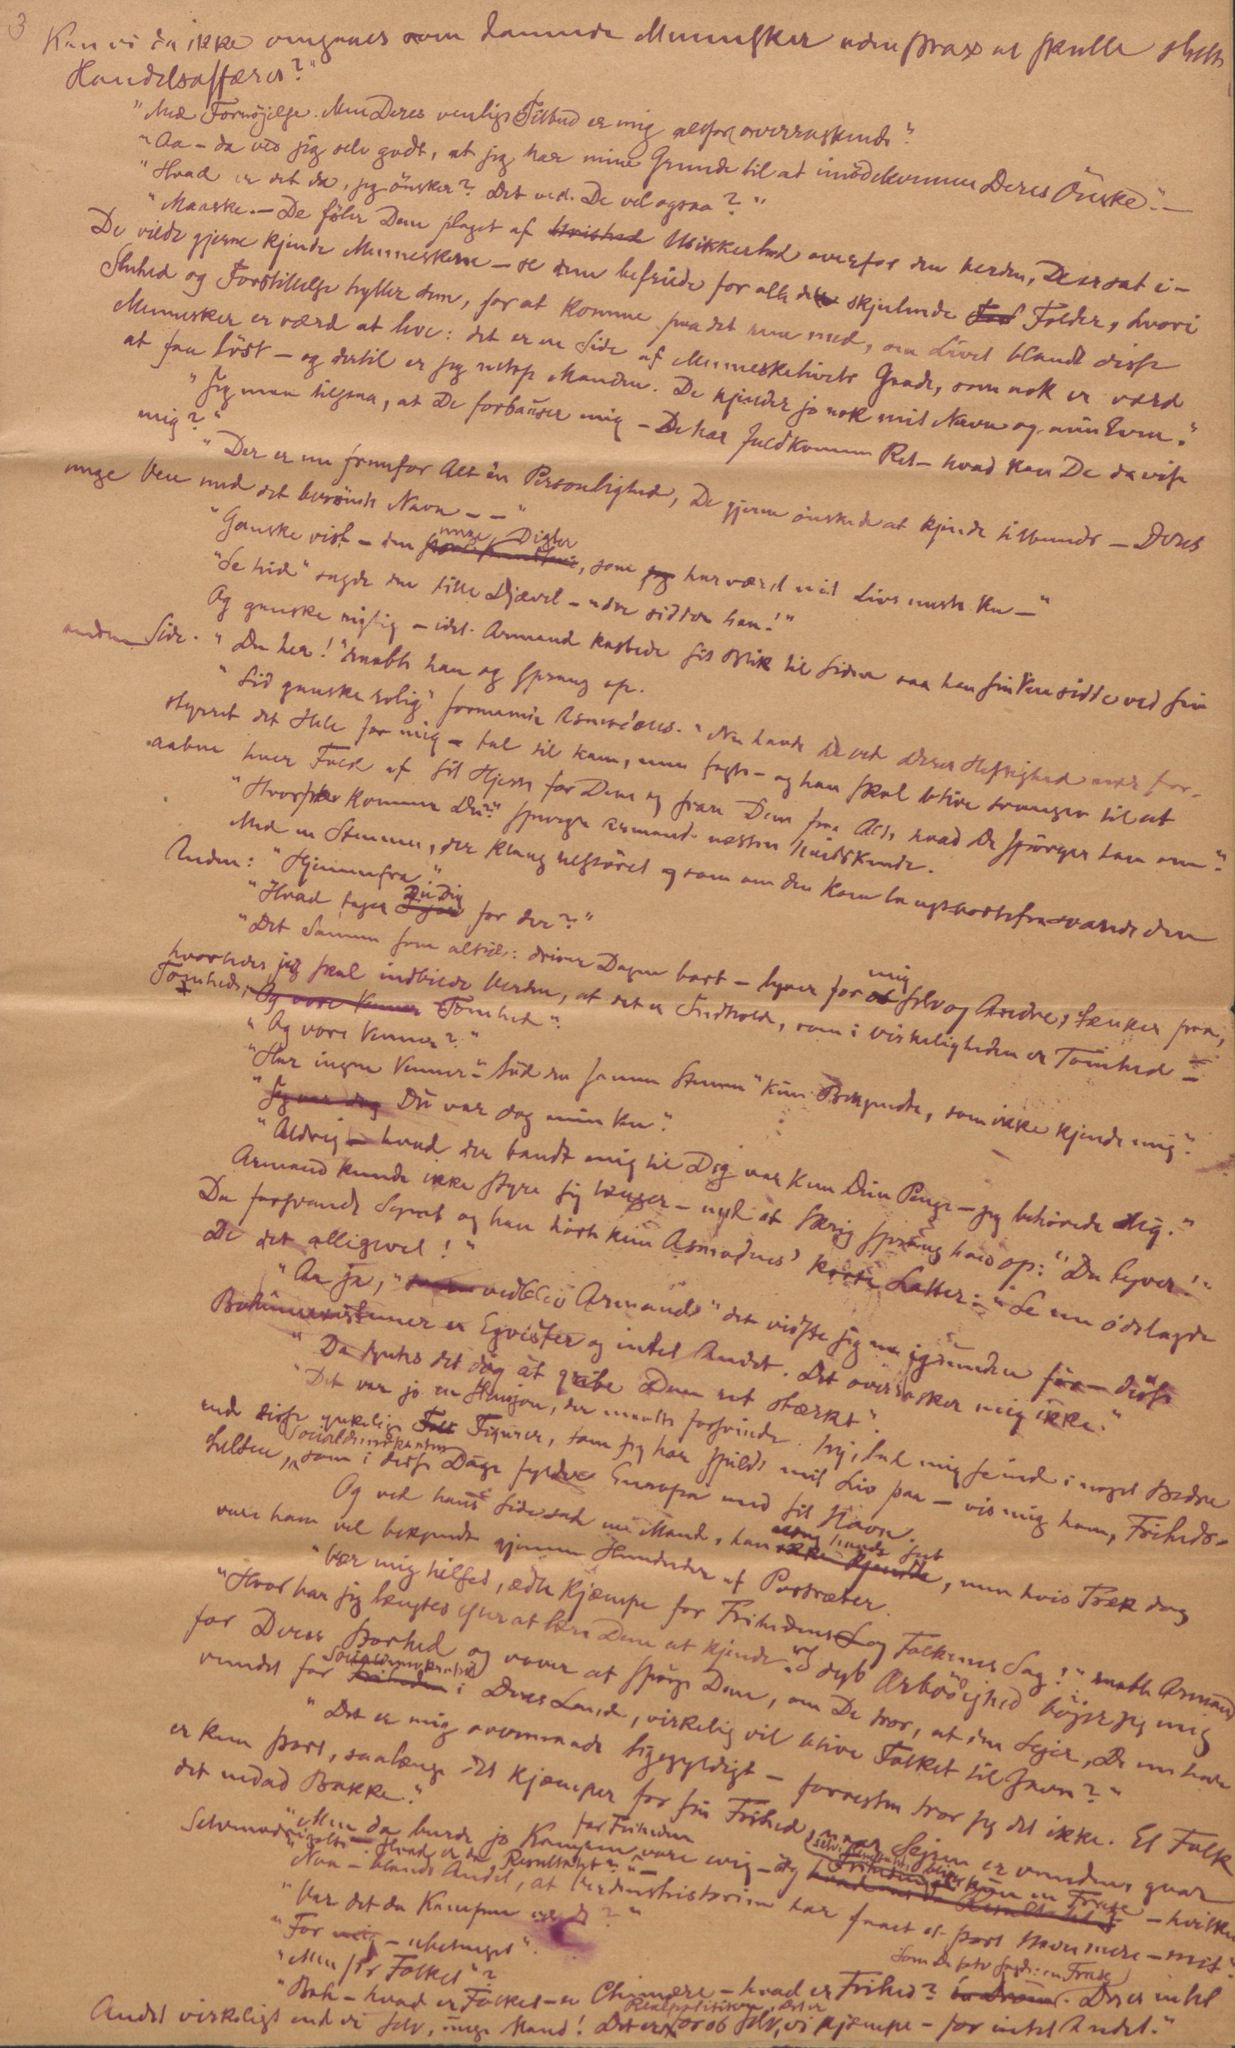 3
Kan vi da ikke omgaaes som dannede Mennesker uden strax at skulle slutte
Handelsaffærer?"
"Med Fornøjelse. Men Deres venlige Tilbud er mig altfor overraskende."
"Aa – da ved jeg selv godt, at jeg har mine Grunde til at imødekomme Deres Ønske." –
"Hvad er det da, jeg ønsker? Det ved De vel ogsaa?"
"Maaske. – De føler Dem plaget af Usikkerhed overfor den Verden, De er sat i –
De vilde gjerne kjende Menneskene – se dem befriede for alle de skjulende Folder, hvori
Sluhed og Forstillelse hyller dem, for at komme paa det rene med, om Livet blandt disse
Mennesker er værd at leve: det er en Side af Menneskelivets Gaade, som nok er værd
at faa løst – og dertil er jeg netop Manden. De kjender jo nok mit Navn og min Evne."
"Jeg maa tilstaa, at De forbauser mig – De har fuldkommen Ret – hvad kan De da vise
mig?"
"Der er nu fremfor Alt én Personlighed, De gjerne ønskede at kjende tilbunds – Deres
unge Ven med det berømte Navn – – "
"Ganske vist – den unge Digter, som har været mit Livs eneste Ven – "
"Se hid" sagde den lille Djævel – "der sidder han!"
Og ganske rigtig – idet Armand kastede sit Blik til Siden saa han sin Ven sidde ved sin
anden Side. "Du her!" raabte han og sprang op.
"Sid ganske rolig" formanede Asmodæus. "Nu havde De ved Deres Heftighed nær for-
styrret det Hele for mig – tal til ham, men sagte – og han skal blive tvungen til at
aabne hver Fold af sit Hjerte for Dem og svare Dem paa Alt, hvad De spørger ham om."
"Hvorfra kommer Du?" spurgte Armand næsten hviskende.
Med en Stemme, der klang sløret og som om den kom langt bortefra svarede den
Anden: "Hjemmefra."
"Hvad tager Du Dig for der?"
"Det Samme som altid: driver Dagen bort – lyver for mig selv og Andre, tænker paa,
hvorledes jeg skal indbilde Verden, at det er Indhold, som i Virkeligheden er Tomhed –
Tomhed."
"Og vore Venner?"
"Har ingen Venner" – lød den samme Stemme "kun Bekjendte, som ikke kjende mig."
"Du var dog min Ven."
"Aldrig – hvad der bandt mig til Dig var kun Dine Penge – jeg behøvede dig."
Armand kunde ikke styre sig længer – med et Skrig sprang han op: "Du lyver!"
Da forsvandt Synet og han hørte kun Asmodæus' Latter: – "Se nu ødelagde
De det alligevel!"
"Aa ja," vedblev Armand "det vidste jeg nu igrunden før – disse
er Egoister og intet Andet. Det overrasker mig ikke."
"Da syntes det dog at gribe Dem ret stærkt."
"Det var jo en Illusion, der maatte forsvinde. Nej, lad mig se ind i noget Bedre
end disse ynkelige Figurer, som jeg har spildt mit Liv paa – vis mig ham, Friheds-
helten, Socialdemokraten som i disse Dage fyldte Europa med sit Navn.
Og ved hans Side sad en Mand, han aldrig havde set, men hvis Træk dog
vare ham vel bekjendt gjennem Hundreder af Portræter.
"Vær mig hilset, ædle Kjæmpe for Frihedens og Folkenes Sag!" raabte Armand
"Hvor har jeg længtes efter at lære Dem at kjende. Med dyb Ærbødighed bøjer jeg mig
for Deres Storhed og vover at spørge Dem, om De tror, at den Sejer, De nu have
vundet for Socialdemokratiet i Deres Lande, virkelig vil blive Folket til Gavn?"
"Det er mig ovenmaade ligegyldigt – forresten tror jeg det ikke. Et Folk
er kun stort, saalænge det kjæmper for sin Frihed, naar Sejren er vunden gaar
det nedad Bakke."
"Men da burde jo Kampen for Friheden vare evig – og Friheden selv bliver kun en Frase – hvilken
Selvmodsigelse – Hvad er da Resultatet?" –
"Naa – blandt Andet, at Verdenshistorien har faaet et stort Navn mere – mit."
"Var det da Kampen værd?"
"For mig – ubetinget".
"Men for Folket"?
"Bah – hvad er Folket – en Chimære – hvad er Frihed? Som De selv sagde: en Frase. Der er intet
Andet virkeligt end vi selv, unge Mand! Det er for os selv, vi kjæmpe – for intet Andet."